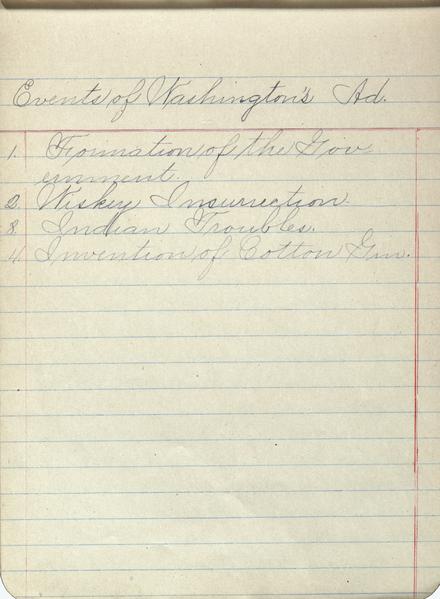 Events of Washington's Ad.
1. Formation of the Gov
ernment.
2. Wiskey Insurrection.
3. Indian Troubles.
4. Invention of Cotton Gin.